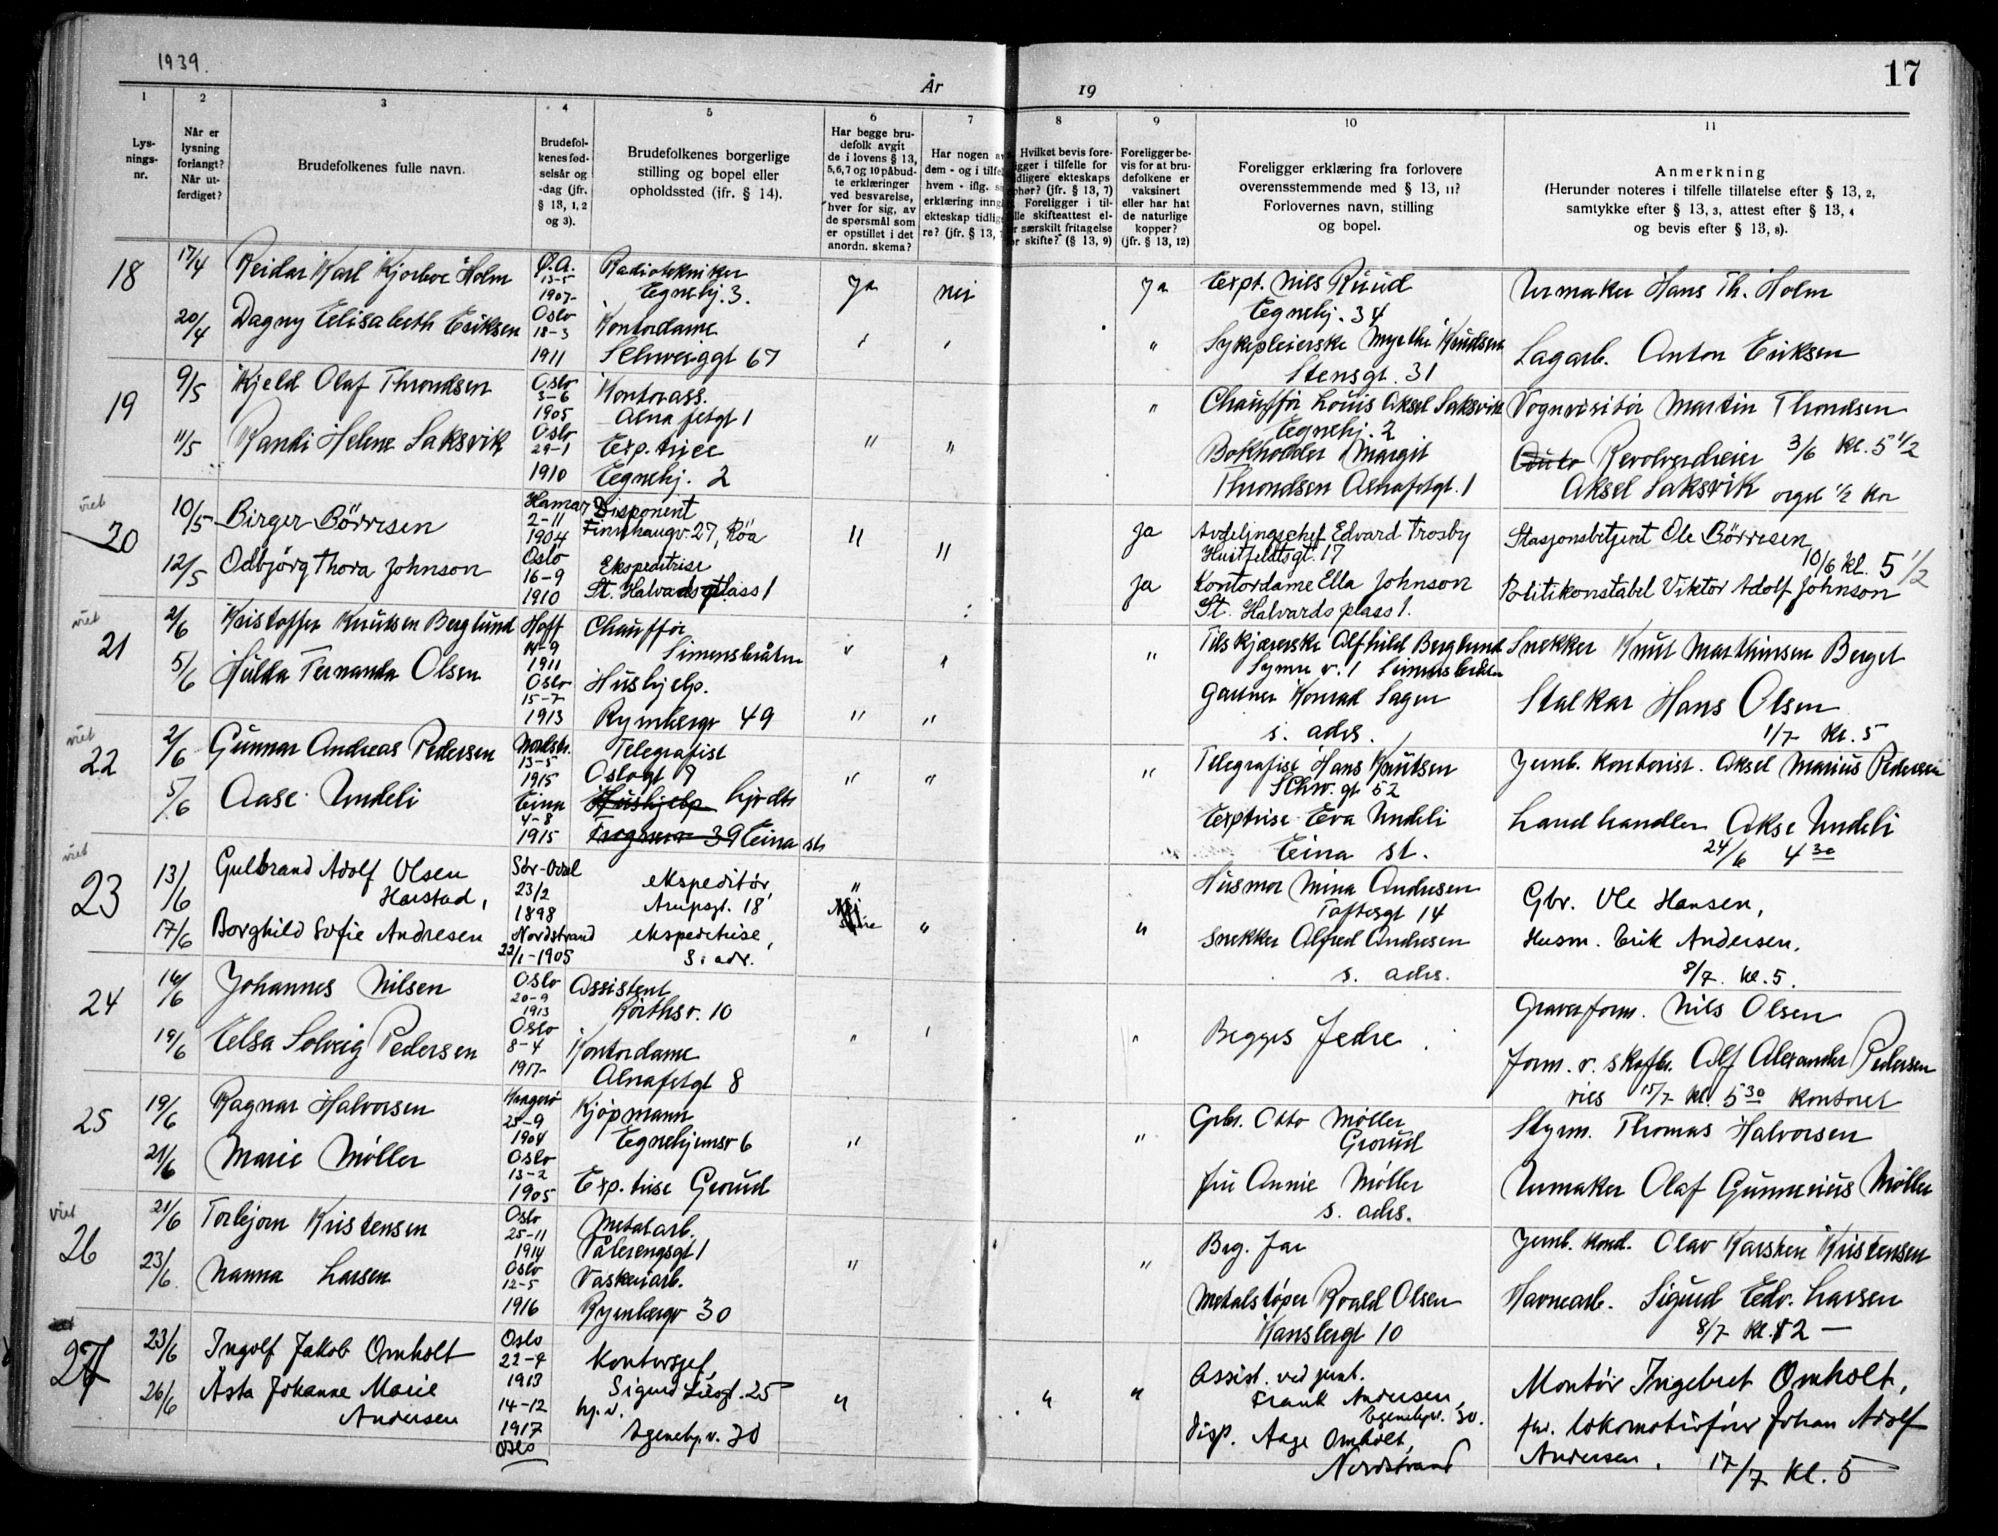 1939.
År
19
17
1
2
3
4
5
6
7
8
9
10
11
Lys-
nings-
nr.
Når er
lysning
forlangt?
Når ut-
ferdiget?
Brudefolkenes fulle navn.
Brudefol-
kenes fød-
selsår og
-dag (jfr.
§ 13, 1, 2
og 3).
Brudefolkenes borgerlige
stilling og bopel eller
opholdssted (ifr. § 14).
Har begge bru-
defolk avgit
de i lovens § 13,
5, 6, 7 og 10 påbud-
te erklæringer
ved besvarelse,
hver for sig, av
de spørsmål som
er opstillet i det
anordn. skema?
Har nogen av
dem - og i tilfel
hvem - iflg.
erklæring inng
ekteskap tidlig
re? (jfr. § 13,
Hvilket bevis fore-
ligger i tilfelle for
dligere ekteskaps
ophør? (jfr. § 13, 7)
Foreligger i til-
lle skifteattest el-
r særskilt fritagelse
r skifte? (§ 13, 9)
Foreligger be-
vis for at bru-
defolkene er
vaksinert
eller har hat
de naturlige
kopper?
(jfr. § 13, 12)
Foreligger erklæring fra forlovere
overensstemmende med § 13, 11?
Forlovernes navn, stilling
og bopel.
Anmerkning
(Herunder noteres i tilfelle tillatelse efter § 13, 2,
samtykke efter § 13, 3, attest efter § 13, 4
og bevis efter § 13, 8).
18
17/4 Reidar Karl Kjorboe Holm
Ø.A.
13-5
1907
Radiotekniker
Egnehj. 3.
Ja
nei
Ja
Expt. Nils Ruud
Egnehj. 34
Urmaker Hans Th. Holm
20/4 Dagny Elisabeth Eriksen
Oslo
18-3
1911
Kontordame
Schweiggt 67
"
Sykepleierske Myrthe Knudsen
Stensgt. 31
Lagarb. Anton Eriksen
19
9/5 Kjeld Olaf Throndsen
Oslo
3-6
1905
Kontorass.
Alnafetgt 1
"
Chauffør Louis Aksel Saksvik
Egnehj. 2
Vognvisitør Martin Throndsen
11/5 Randi Helene Saksvik
Oslo
29-1
1910
Exp.trice
Egnehj. 2
"
"
Bokholder Margit
Throndsen Alnafetgt. 1
Auto Revolverdreier 3/6 kl. 5 1/2
Aksel Saksvik orgel 1/2 kor
viet
20
10/5 Birger Börresen
Hamar
2-11
1904
Disponent
Finnhaugv. 27, Röa
"
"
ja
Avdelingschef Edvard Trosby
Huitfeldtsgt. 17
Stasjonsbetjent Ole Börresen
10/6 kl. 5 1/2
12/5 Odbjörg Thora Johnson
Oslo
16-9
1910
Ekspeditrise
St. Halvards plass 1
ja
Kontordame Ella Johnson
St. Halvards plass 1.
Politikonstabel Viktor Adolf Johnson
viet
21
2/6 Kristoffer Knutsen Berglund
Hoff
14-9
1911
Chauffør
Simensbråten
"
Tilskjærerske Alfhild Berglund
Symre v. 1 Simensbråten
Snekker Knut Marthinsen Berget
5/6 Hulda Fernanda Olsen
Oslo
15-7
1913
Hushjelp.
Rymbergv 49
"
"
Gartner Konrad Sagen
s. adrs.
Stalkar Hans Olsen
1/7 kl. 5
viet
22
2/6 Gunnar Andreas Pedersen
13-5
1915
Telegrafist
Oslogt 9
"
"
"
Telegrafist Hans Knutsen
Schw. gt 52
Jernb. kontorist. Aksel Marius Pedersen
5/6 Aase Undeli
Eina
4-8
1915
Hushjelp
39 Eina st
Exptrise Eva Undeli
Eina st.
Landhandler Akse Undeli
24/6 4 30
viet
23
13/6 Gulbrand Adolf Olsen
Harstad,
Sør-Odal
23/2
1898
ekspeditør,
Arupsgt. 18
"
Husmor Mina Andresen
Toftesgt 14
Gbr. Ole Hansen,
17/6 Borghild Sofie Andresen
Nordstrand
22/1-1905
ekspeditrise,
s. adr.
"
"
Snekker Alfred Andresen
s. adrs.
Husm. Erik Andersen.
8/7 kl. 5.
24
16/6 Johannes Nilsen
Oslo
20-9
1913
Assistent
10
Graverform. Nils Olsen
19/6 Elsa Solveig Pedersen
Oslo
8-4
1917
Kontordame
Alnafetgt 8
"
"
Begges Fedre
Form. v. skofbr. Alf Alexander Pedersen
vies 15/7 kl. 5 30 kontoret
25
19/6 Ragnar Halvorsen
Kragerø
25-9
1904
Kjøpmann
Egnehjemsv 6
"
"
Gbr. Otto Møller
Grorud
Styrm. Thomas Halvorsen
21/6 Marie Møller
Oslo
13-2
1905
Exp.trise Grorud
Fru Annie Møller
s. adrs.
Urmaker Olaf Gunnerius Møller
viet
26
21/6 Torbjørn Kristensen
Oslo
25-11
1914
Metalarb.
Vålerengsgt 1
"
"
Brg. Far
Jernb. kond. Olav Karsten Kristensen
23/6 Nanna Larsen
Oslo
12-5
1916
Vaskeriarb.
Rymbergv 30
Metalstøper Roald Olsen
10
Havnearb. Sigurd Edv. Larsen
8/7 kl. 12 —
27
23/6 Ingolf Jakob Omholt
Oslo
22-9
1913
Kontorsjef,
25
Assist. ved jernb.
Frank Andersen,
Egnehjv. 30.
Montør Ingebret Omholt,
26/6 Asta Johanne Marie
Andersen
14-12
1917
Oslo
hj. v.
Egnehj. v. 30
"
"
"
Disp. Aage Omholt,
Nordstrand
lokomotivfører Johan Adolf
Andersen. 17/7 kl. 5